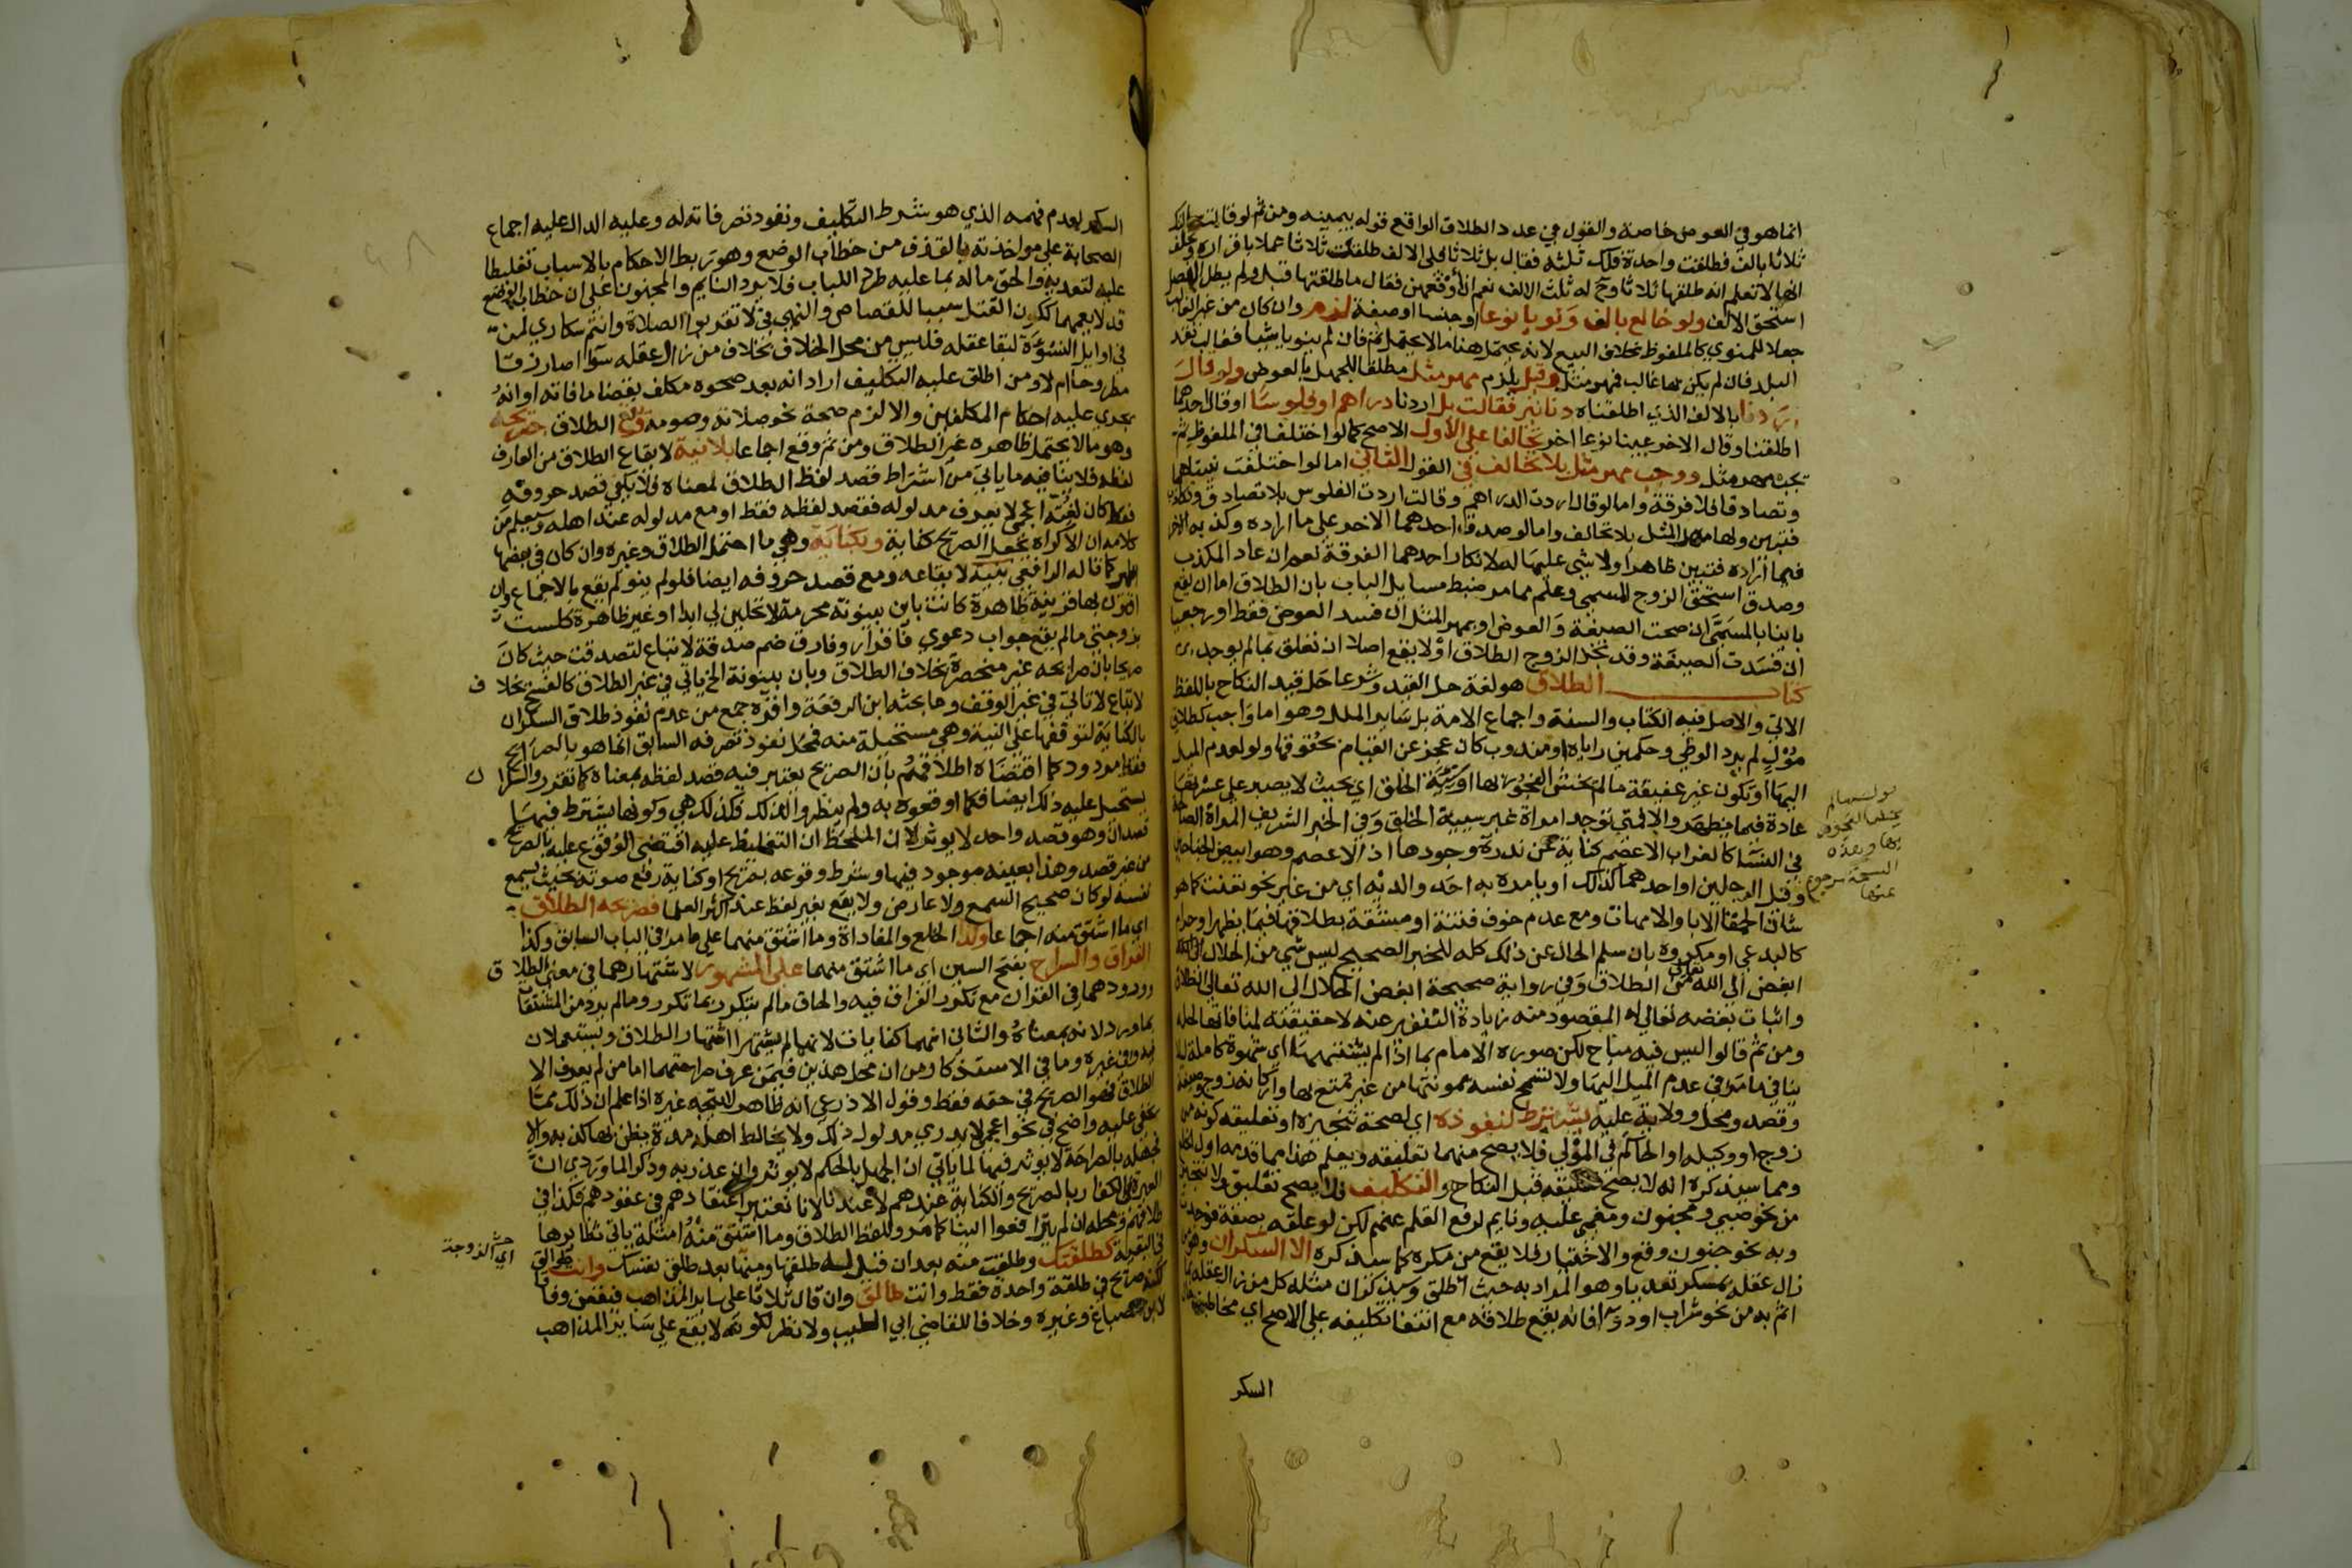 انما هو في العوض خاصة والقول في عدد الطلاق الواقع قوله بيمينه ومن ثم لو قالت
ثلاثا بالف فطلقت واحدة فلك ثلثه فقال بل ثلاثا فلي الالف طلقت ثلاثا عملا باقراره وتحالفا
انها لا تعلم انه طلقها ثلاثا وح له ثلث الالف نعم ان أوقعهن فقال ما طلقتها قبل ولم يطل الفصل
استحق الالف ولو خالع بالف ونويا نوعا او جنسا او صفة لزم وان كان من غير الغالب
جعلا للمنوي كالملفوظ بخلاف البيع لانه يحتمل هنا ما لا يحتمل ثم فان لم ينويا شيا فغالب نقد
البلد فان لم يكن بها غالب فمهر مثل وقيل يلزم مهر مثل مطلقا للجهل بالعوض ولو قال
اردنا بالالف الذي اطلقناه دنانير فقالت بل اردنا دراهم او فلوسا او قال احدهما
اطلقنا وقال الاخر عينا نوعا اخر تحالفا على الأول الاصح كما لو اختلفا في الملفوظ ثم
يجب مهر مثل ووجب مهر مثل بلا تحالف في القول الثاني اما لو اختلفت نيتاهما
وتصادقا فلا فرقة واما لو قال اردت الدراهم وقالت اردت الفلوس بلا تصادق
فتبين ولها مهر المثل بلا تحالف واما لو صدق احدهما الاخر على ما اراده وكذبه الاخر
فيما أراده فتبين ظاهرا ولا شي عليها له لانكار احدهما الفرقة نعم ان عاد المكذب
وصدق استحق الزوج المسمى وعلم مما مر ضبط مسايل الباب بان الطلاق اما ان يقع
باينا بالمسمى ان صحت الصيغة والعوض او بمهر المثل ان فسد العوض فقط او رجعيا
ان فسدت الصيغة وقد نجز الزوج الطلاق أو لا يقع اصلا ان تعلق بما لم يوجد
كتاب الطلاق هو لغة حل القيد وشرعا حل قيد النكاح باللفظ
الاتي والاصل فيه الكتاب والسنة واجماع الامة بل ساير الملل وهو اما واجب كطلاق
مؤل لم يرد الوطي وحكمين راياه او مندوب كان عجز عن القيام بحقوقها ولو لعدم الميل
اليها او تكون غير عفيفة ما لم يخش الفجور بها او سيئة الخلق اي بحيث لا يصبر على عشرتها
عادة فيما يظهر والا فمتى توجد امراة غير سيئة الخلق وفي الخبر الشريف المراة الصالحة
في النسا كالغراب الاعصم كناية عن ندرة وجودها اذ الاعصم وهو ابيض الجناحين
وقيل الرجلين او احدهما كذلك أو يامره به احد والديه اي من غير نحو تعنت كما هو
شان الحمقا الابا والامهات ومع عدم خوف فتنة او مشقة بطلاقها فيما يظهر او حرام
كالبدعي او مكروه بان سلم الحال عن ذلك كله للخبر الصحيح ليس شي من الحلال
ابغض الى الله تعالى من الطلاق وفي رواية صحيحة ابغض الحلال الى الله تعالى الطلاق
واثبات بغضه تعالى له المقصود منه زيادة التنفير عنه لا حقيقته لمنافاتها لحله
ومن ثم قالوا ليس فيه مباح لكن صوره الامام بما اذا لم يشتهها اي شهوة كاملة لئلا
ينافي ما مر في عدم الميل اليها ولا تسمح نفسه بمونتها من غير تمتع بها واركانه زوج وصيغة
وقصد ومحل وولاية عليه يشترط لنفوذه اي لصحة تنجيزه او تعليقه كونه من
زوج او وكيله او الحاكم في المؤلي فلا يصح منهما تعليقه ويعلم هذا مما قدمه اول
ومما سيذكره انه لا يصح تعليقه قبل النكاح والتكليف فلا يصح تعليق ولا تنجيز
من نحو صبي ومجنون ومغمى عليه ونايم لرفع القلم عنهم لكن لو علقه بصفة فوجدت
وبه نحو جنون وقع والاختيار فلا يقع من مكره كما سيذكره الا السكران وهو من
زال عقله بمسكر تعديا وهو المراد به حيث أطلق وسيذكر ان مثله كل من زال عقله بما
اثم به من نحو شراب او دوآ فانه يقع طلاقه مع انتفا تكليفه على الاصح اي مخاطبته
السكر
السكر لعدم فهمه الذي هو شرط التكليف ونفوذ تصرفاته له وعليه الدال عليه اجماع
الصحابة على مواخذته بالقذف من خطاب الوضع وهو ربط الاحكام بالاسباب تغليظا
عليه لتعديه والحق ماله بما عليه طردا للباب فلا يرد النايم والمجنون على ان خطاب الوضع
قد لا يعمهما ككون القتل سببا للقصاص والنهي في لا تقربوا الصلاة وانتم سكارى لمن
في اوايل النشوة لبقا عقله فليس من محل الخلاف بخلاف من زال عقله سوا اصار زقا
مطروحا ام لا ومن اطلق عليه التكليف اراد انه بعد صحوه مكلف بقضا ما فاته او انه
يجري عليه احكام المكلفين والا لزم صحة نحو صلاته وصومه ويقع الطلاق بصريحه
وهو ما لا يحتمل ظاهره غير الطلاق ومن ثم وقع اجماعا بلا نية لايقاع الطلاق من العارف
لفظه فلا ينافيه ما ياتي من اشتراط قصد لفظ الطلاق لمعناه فلا يكفي قصد حروفه
فقط كان لقنه اعجمي لا يعرف مدلوله فقصد لفظه فقط او مع مدلوله عند اهله وسيعلم من
كلامه ان الاكراه يجعل الصريح كناية وبكناية وهي ما احتمل الطلاق وغيره وان كان في بعضها
اظهر كما قاله الرافعي بنية لايقاعه ومع قصد حروفه ايضا فلو لم ينو لم يقع بالاجماع وان
اقترن بها قرينة ظاهرة كانت باين بينونة محرمة لا تحلين لي ابدا او غير ظاهرة كلست
بزوجتي ما لم يقع جواب دعوى فاقرار وفارق ضم صدقة لا تباع لتصدقت حيث كان
صريحا بان صرايحه غير منحصرة بخلاف الطلاق وبان بينونة الخ ياتي في غير الطلاق كالفسخ بخلاف
لا تباع لا تاتي في غير الوقف وما بحثه ابن الرفعة واقره جمع من عدم نفوذ طلاق السكران
بالكناية لتوقفها على النية وهي مستحيلة منه فمحل نفوذ تصرفه السابق انما هو بالصرايح
فقط مردود كما اقتضاه اطلاقهم بان الصريح يعتبر فيه قصد لفظه بمعناه كما تقرر والسكران
يستحيل عليه ذلك ايضا فكما اوقعوه به ولم ينظروا لذلك فكذلك هي وكونها يشترط فيها
قصدان وهو قصد واحد لا يوثر لان الملحظ ان التغليظ عليه اقتضى الوقوع عليه بالصريح
من غير قصد وهذا بعينه موجود فيها وشرط وقوعه بصريح او كناية رفع صوته بحيث يسمع
نفسه لو كان صحيح السمع ولا عارض ولا يقع بغير لفظ عند اكثر العلما فصريحه الطلاق
اي ما اشتق منه اجماعا وكذا الخلع والمفاداة وما اشتق منهما على ما مر في الباب السابق وكذا
الفراق والسراح بفتح السين اي ما اشتق منهما على المشهور لاشتهارهما في معنى الطلاق
وورودهما في القران مع تكرر الفراق فيه والحاق ما لم يتكرر بما تكرر وما لم يرد من المشتقات
بما ورد لانه بمعناه والثاني انهما كنايات لانهما لم يشتهرا اشتهار الطلاق ويستعملان
فيه وفي غيره وما في الاستذكار من ان محل هذين فيمن عرف صراحتهما اما من لم يعرف الا
الطلاق فهو الصريح في حقه فقط وقول الاذرعي انه ظاهر لا يتجه غيره اذا علم ان ذلك مما
يخفى عليه واضح في نحو اعجمي لا يدري مدلول ذلك ولا يخالط اهله مدة يظن بها كذبه والا
فجهله بالصراحة لا يوثر فيها لما ياتي ان الجهل بالحكم لا يوثر وان عذر به وذكر الماوردي ان
العبرة في الكفار بالصريح والكناية عندهم لا عندنا لانا نعتبر اعتقادهم في عقودهم فكذا في
طلاقهم ومحله ان لم يترافعوا الينا كما مر وللفظ الطلاق وما اشتق منه امثلة ياتي نظايرها
في البقية كطلقتك وطلقت منه بعد ان قيل له طلقها ومنها بعد طلقي نفسك وانت طالق
لكنه صريح في طلقة واحدة فقط وانت طالق وان قال ثلاثا على ساير المذاهب فيقعن وفاقا
لابن الصباغ وغيره وخلافا للقاضي ابي الطيب ولا نظر لكونه لا يقع على ساير المذاهب
اي الزوجة